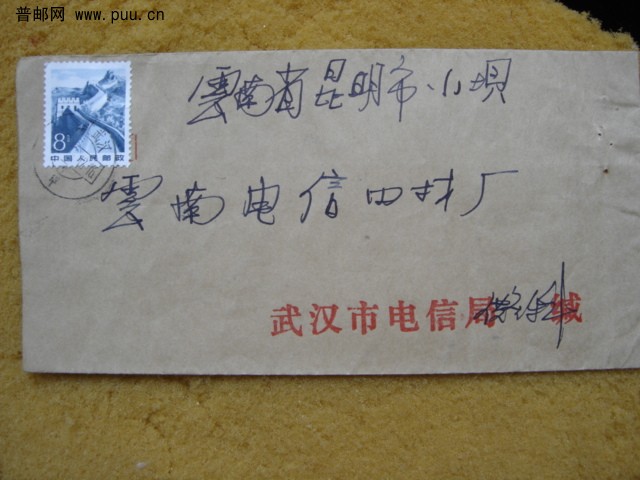 普邮网 www.puu.cn
雲南省昆明市小坝
8分
中国人民邮政
武汉
雲南电信器材厂
武汉市电信局 缄